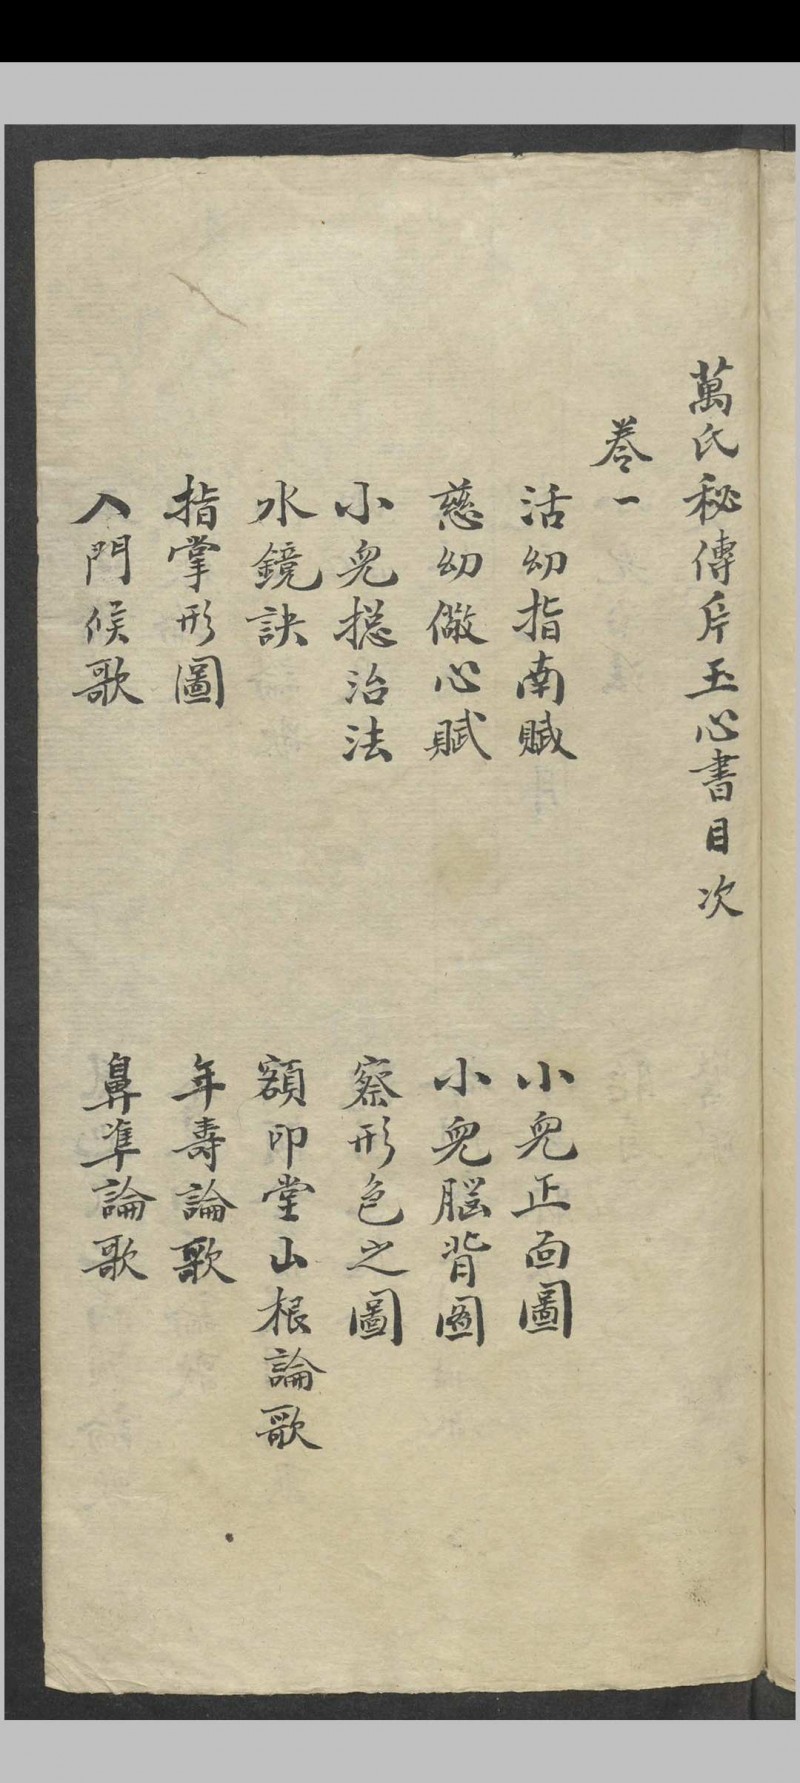 萬氏秘傳片玉心書目次
卷一
活幼指南賦
小兒正面圖
慈幼儆心賦
小兒腦背圖
小兒摠治法
察形色之圖
水鏡訣
額印堂山根論歌
指掌形圖
年壽論歌
入門候歌
鼻準論歌